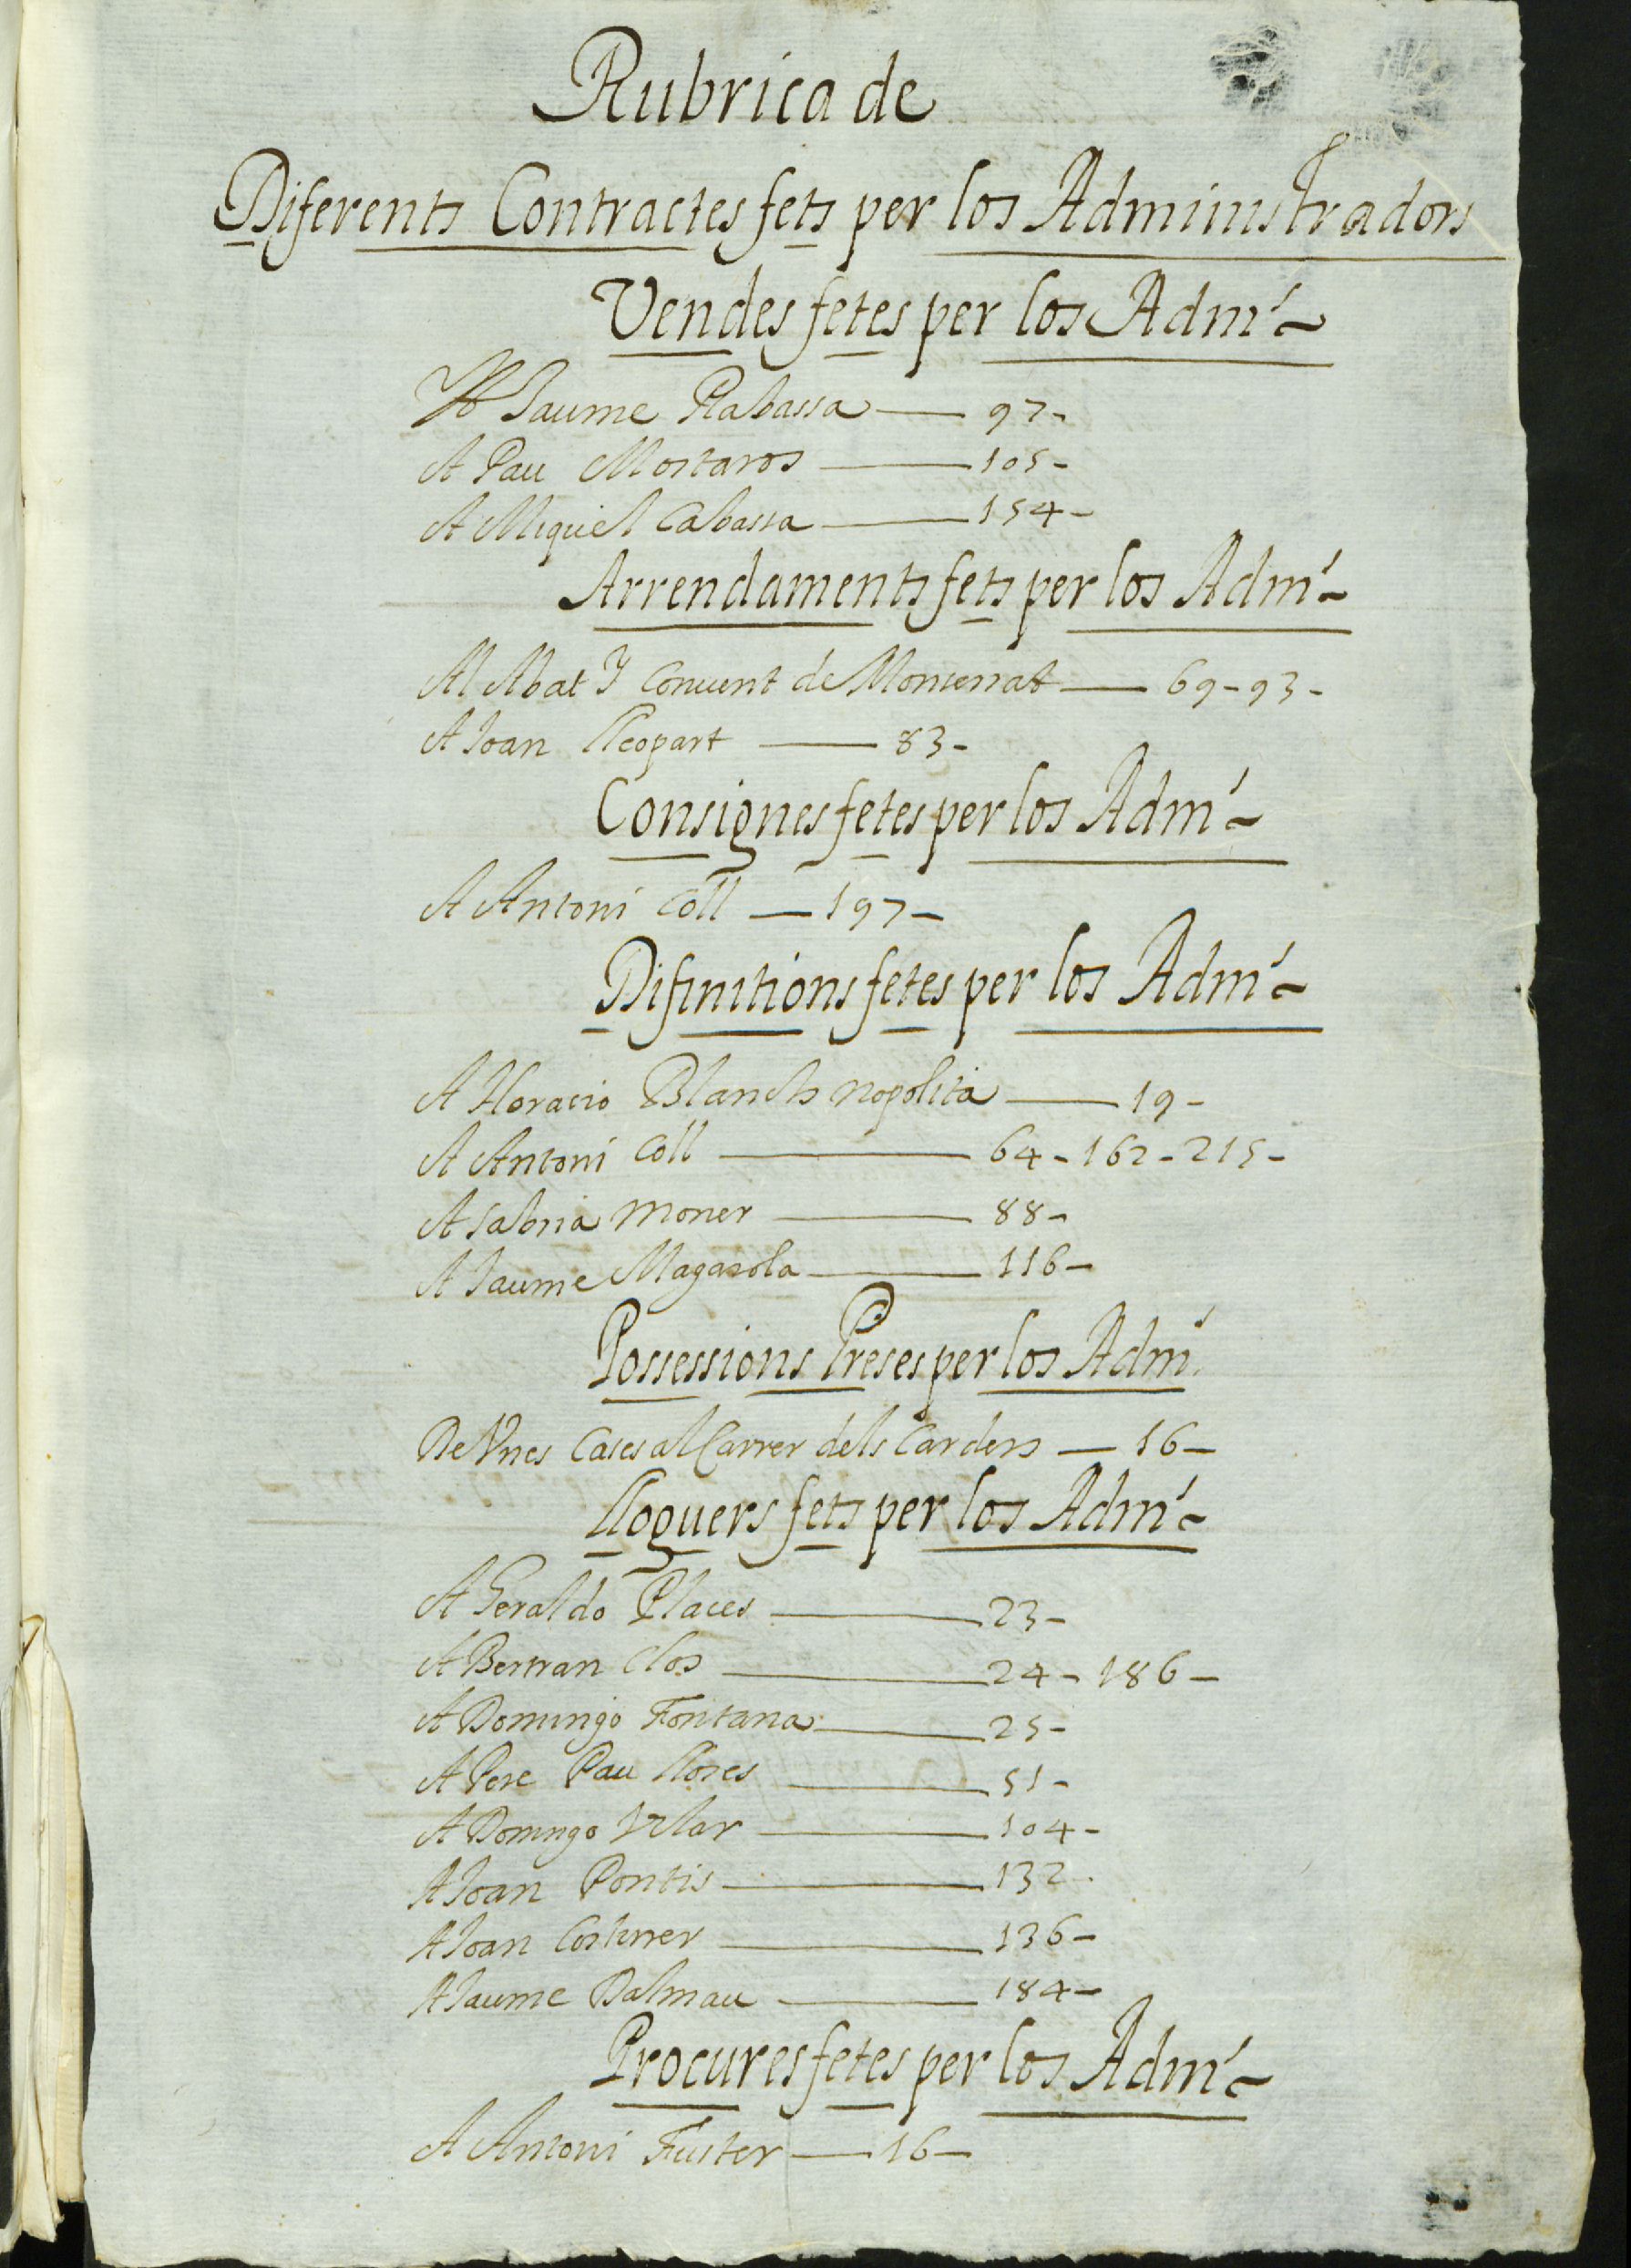 Rubrica de
Diferents Contractes fets per los Administradors
Vendes fetes per los Adm.
A Jaume Rabassa — 97-
A Pau Mostaros — 105-
A Miquel Cabassa — 154-
Arrendaments fets per los Adm.
Al Abat Y Convent de Monserrat — 69-93-
A Joan Lleopart — 83-
Consignes fetes per los Adm.
A Antoni Coll — 197-
Difinitions fetes per los Adm.
A Horacio Blanch Nopolità — 19-
A Antoni Coll — 64-162-215-
A Sabria Moner — 88-
A Jaume Magarola — 116-
Possessions Preses per los Adm.
De Unes Cases al Carrer dels Carders — 16-
Lloguers fets per los Adm.
A Geraldo Places — 23-
A Bertran Clos — 24-186-
A Domingo Fontana — 25-
A Pere Pau — 51-
A Domingo Vilar — 104-
A Joan Pontis — 132-
A Joan — 136-
A Jaume Dalmau — 184-
Procures fetes per los Adm.
A Antoni Fuster — 16-